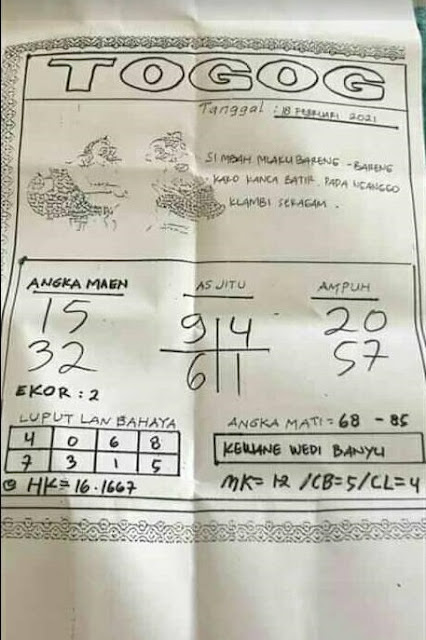 TOGOG
Tanggal : 18 FEBRUARI 2021
SI MBAH MLAKU BARENG - BARENG
KARO KANCA BATIR. PADA NGANGGO
KLAMBI SERAGAM.
ANGKA MAEN
15
32
EKOR : 2
AS JITU
9 4
6 1
AMPUH
20
57
LUPUT LAN BAHAYA
4 0 6 8
7 3 1 5
HK = 16.1667
ANGKA MATI = 68 - 85
KEWANE WEDI BANYU
MK= 12 /CB=5/CL=4